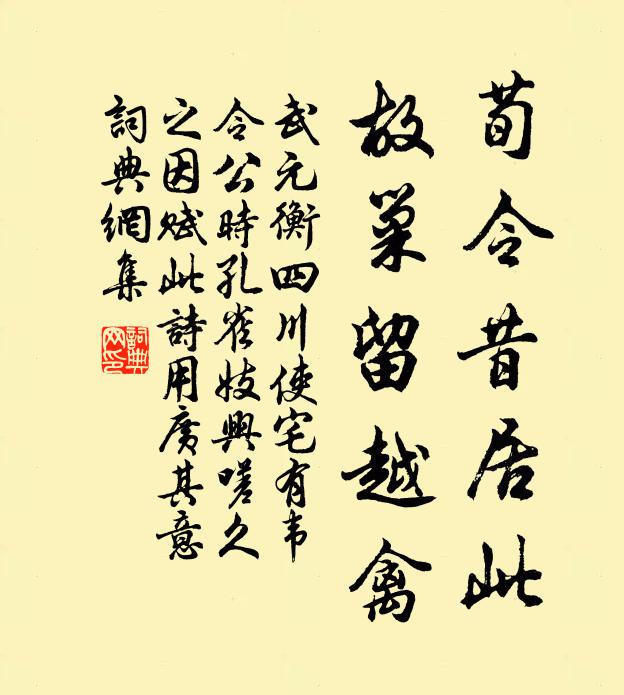 荀令昔居此
故巢留越禽
武元衡四川使宅有韦
令公時孔雀妓興嗟久
之因赋此詩用廣其意
詞典網集
詞典
网印